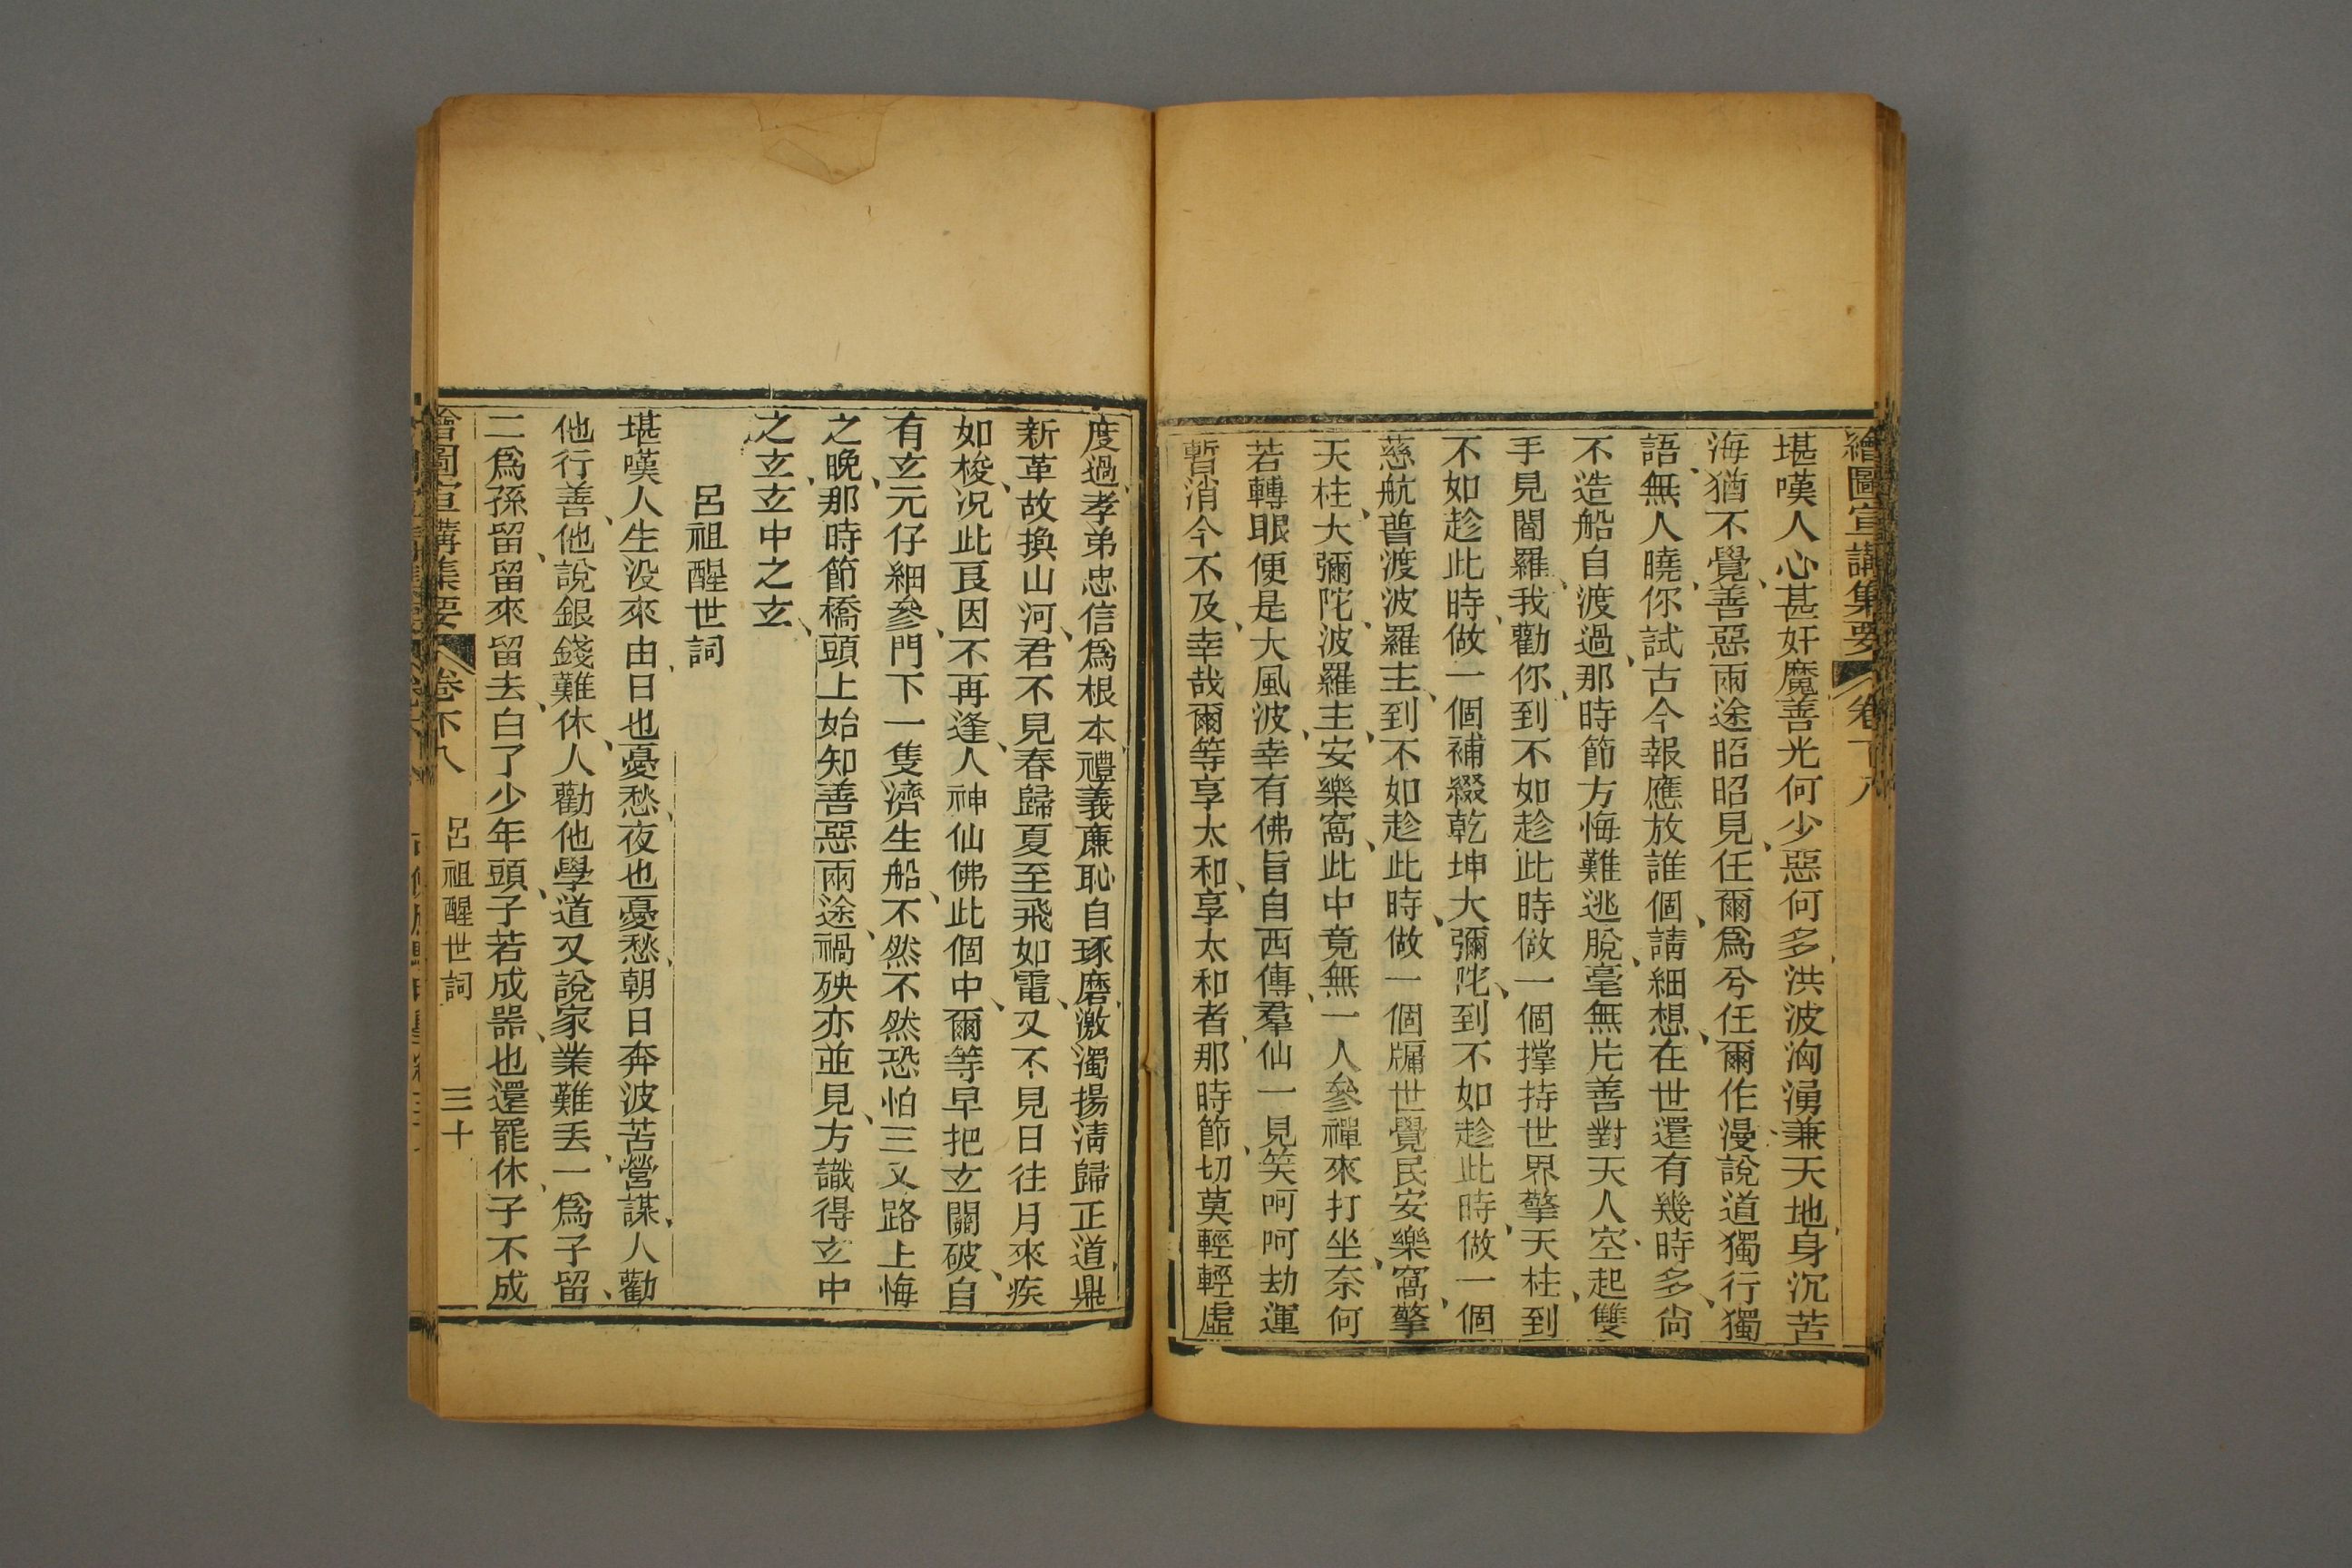 繪圖宣講集要 卷下八
堪嘆人心甚奸魔善光何少惡何多、洪波洶湧兼天地、身沉苦
海猶不覺、善惡兩途昭昭見、任爾爲兮任爾作、漫說道獨行獨
語、無人曉、你試古今報應放誰個、請細想、在世還有幾時多、尙
不造船自渡過、那時節方悔難逃脫、毫無片善對天人、空起雙
手見閻羅、我勸你、到不如趁此時做一個撑持世界擎天柱、到
不如趁此時、做一個補綴乾坤大彌陀、到不如趁此時、做一個
慈航普渡波羅主、到不如趁此時、做一個牖世覺民安樂窩、擎
天柱、大彌陀、波羅主、安樂窩、此中竟無一人參禪來打坐、奈何
若轉眼便是大風波、幸有佛旨自西傳、羣仙一見笑呵呵、劫運
暫消今不及、幸哉爾等享太和、享太和者、那時節、切莫輕輕虛
度過、孝弟忠信爲根本、禮義廉恥自琢磨、激濁揚淸歸正道、鼎
新革故換山河、君不見春歸夏至飛如電、又不見日往月來疾
如梭、况此良因不再逢、人神仙佛此個中、爾等早把玄關破、自
有玄元仔細參、門下一隻濟生船、不然不然恐怕三叉路上悔
之晚、那時節橋頭上始知善惡兩途、禍殃亦並見、方識得玄中
之玄、玄中之玄、
呂祖醒世詞
堪嘆人生没來由、日也憂愁、夜也憂愁、朝日奔波苦營謀、人勸
他行善、他說銀錢難休、人勸他學道、又說家業難丢、一爲子留、
二爲孫留、留來留去、白了少年頭、子若成器、也還罷休、子不成
繪圖宣講集要 卷下八 呂祖醒世詞 三十